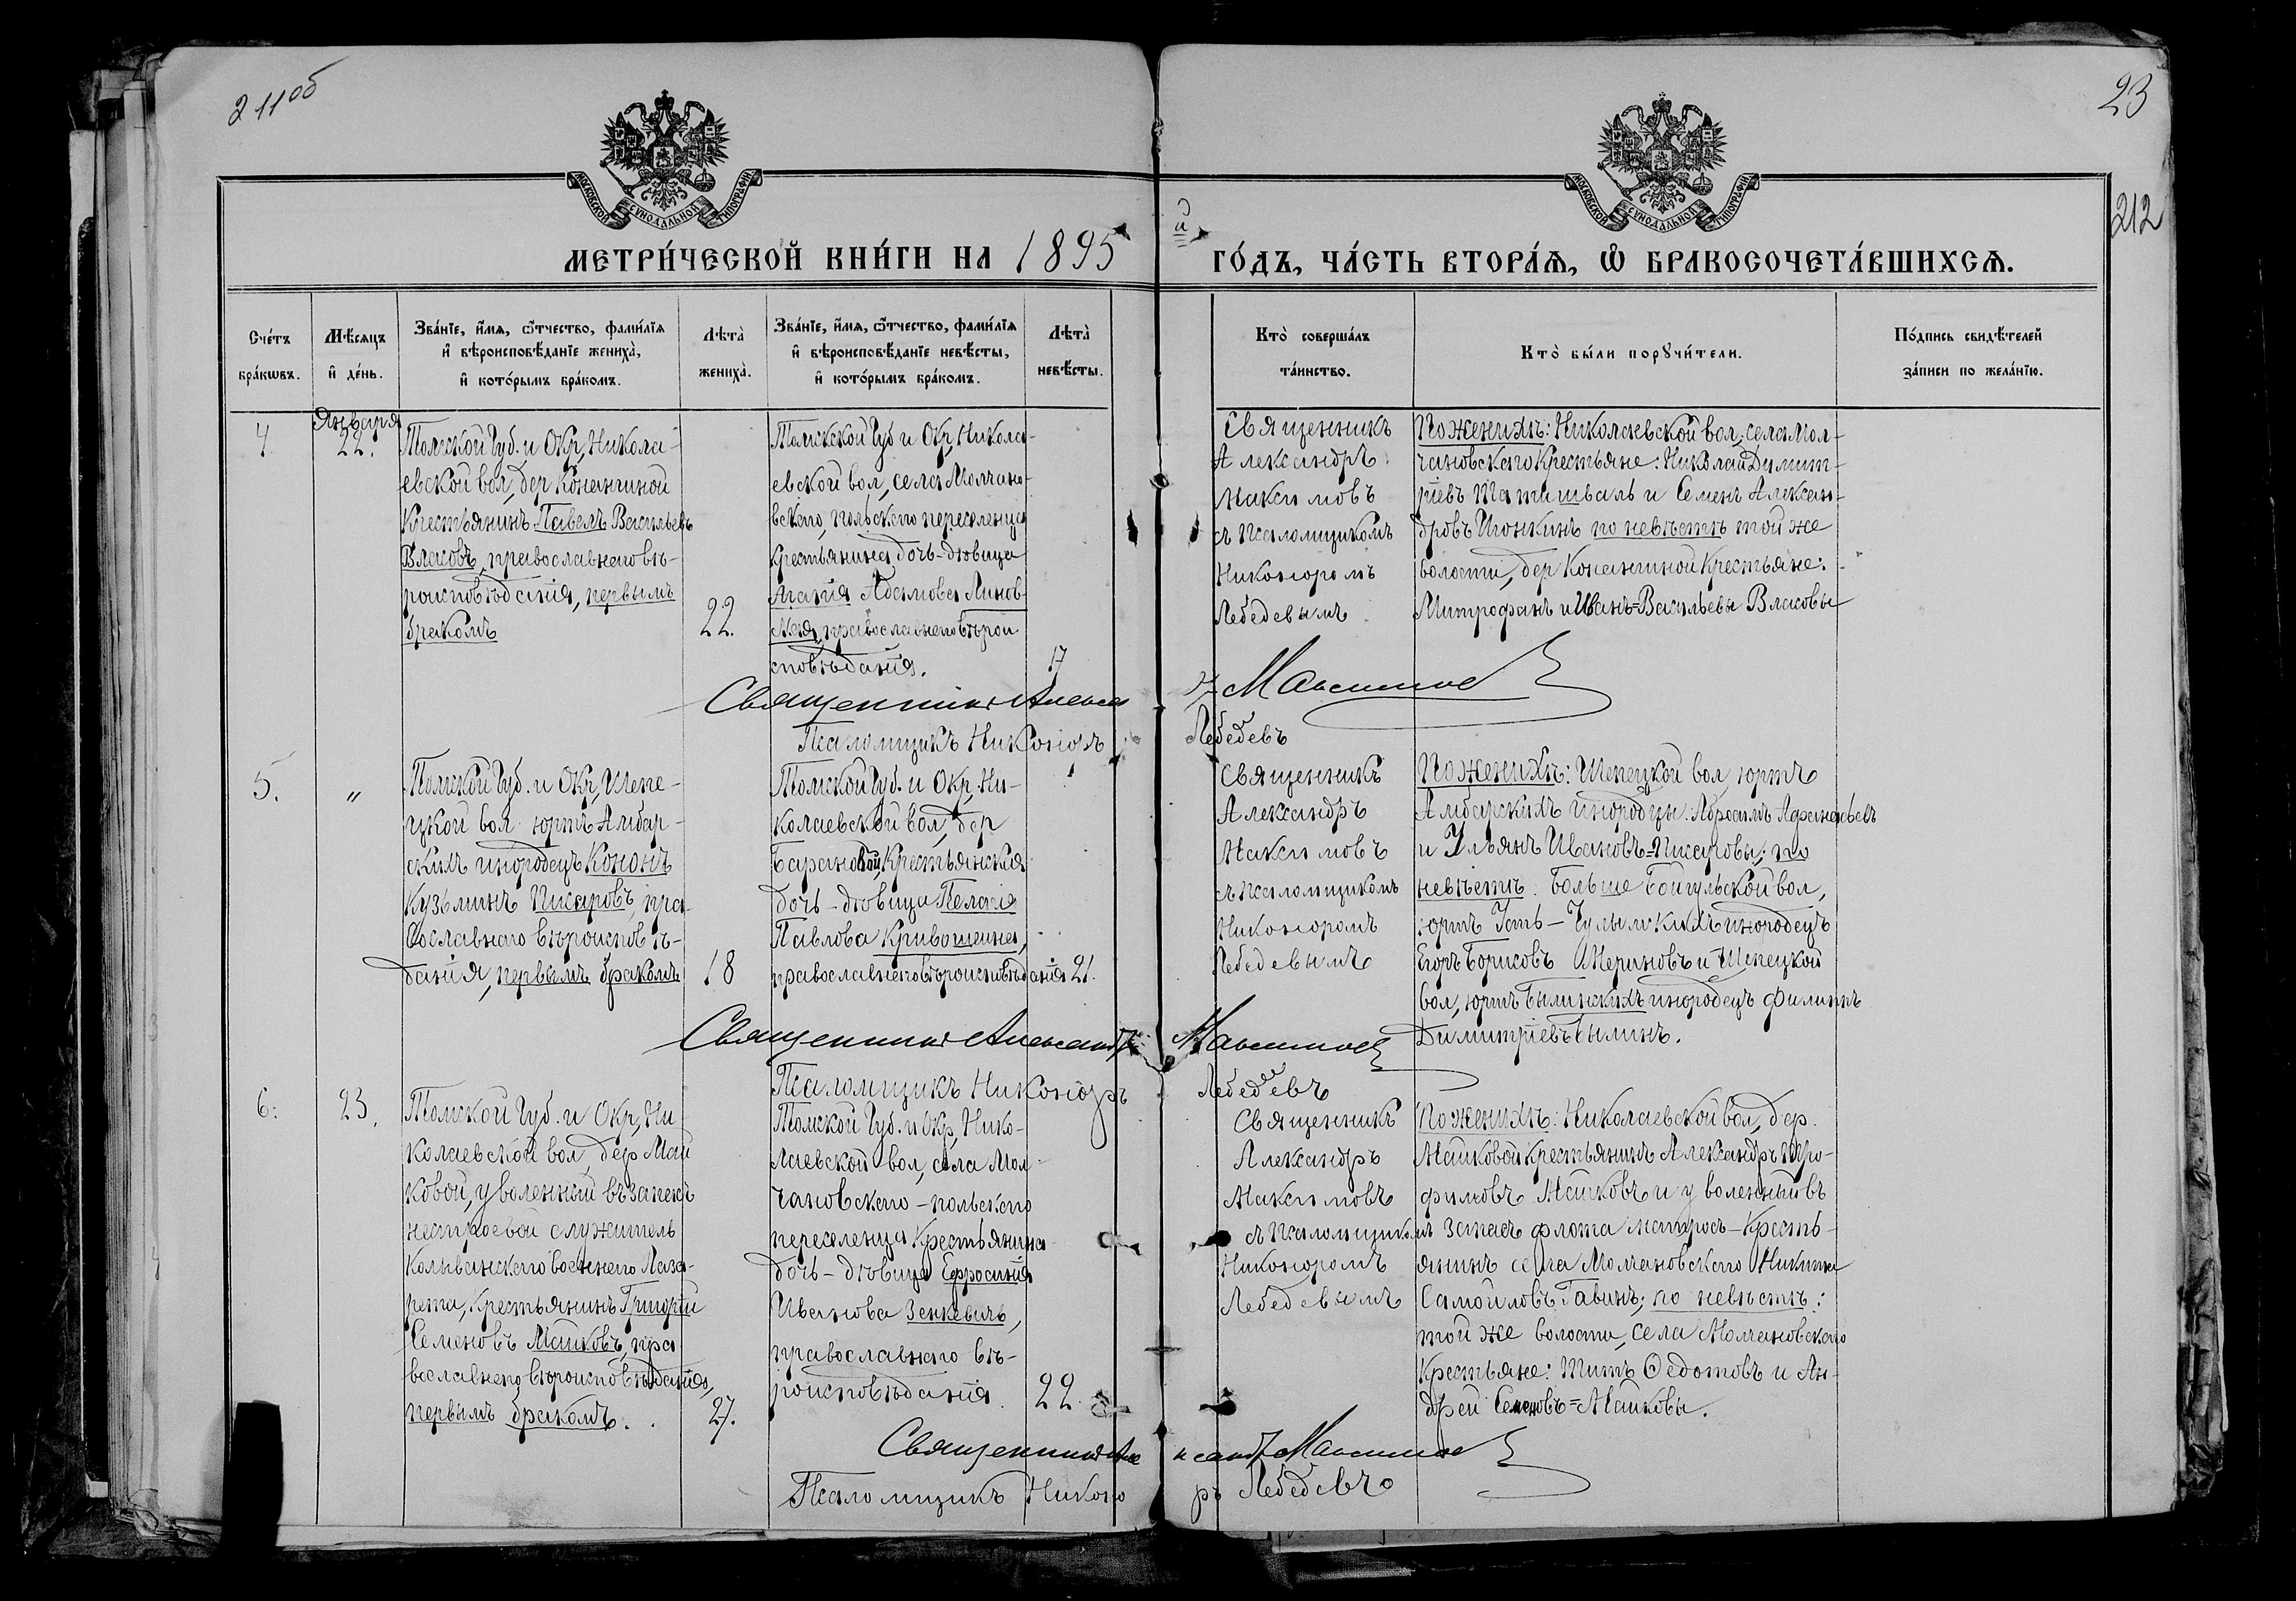 211 об
23
212
МОСКОВСКОЙ СѴНОДАЛЬНОЙ ТИПОГРАФІИ
МОСКОВСКОЙ СѴНОДАЛЬНОЙ ТИПОГРАФІИ
МЕТРИ́ЧЕСКОЙ КНИ́ГИ НА 1895 й ГО́ДЪ, ЧА́СТЬ ВТОРА́Ѧ, Ѽ БРАКОСОЧЕТА́ВШИХСѦ.
Сче́тъ
бра́кѡвъ.
Мѣ́сѧцъ
и҆ де́нь.
Зва́нїе, и҆́мѧ, ѻ҆́тчество, фами́лїѧ
и҆ вѣроисповѣ́данїе жениха̀,
и҆ кото́рымъ бра́комъ.
Лѣта̀
жениха̀.
Зва́нїе, и҆́мѧ, ѻ҆́тчество, фами́лїѧ
и҆ вѣроисповѣ́данїе невѣ́сты,
и҆ кото́рымъ бра́комъ.
Лѣта̀
невѣ́сты.
Кто̀ соверша́лъ
та́инство.
Кто̀ бы́ли порꙋчи́тели.
По́дпись свидѣ́телей
за́писи по жела́нїю.
4.
Января
22.
Томской Губ. и Окр, Никола-
евской вол, дер Конангиной
Крестьянинъ Павелъ Васильевъ
Власовъ, православнаго вѣ-
роисповѣданія, первымъ
бракомъ
22.
Томской Губ и Окр, Никола-
евской вол, села Молчано-
вскаго, польскаго переселенца
Крестьянина дочь-дѣвица
Агапія Адамова Линов-
ская, православнаго вѣрои
сповѣданія.
17
Священникъ
Александръ
Максимовъ
съ Псаломщикомъ
Никоноромъ
Лебедевымъ
По женихѣ: Николаевской вол, села Мол-
чановскаго Крестьяне: Николай Димит-
ріевъ и Семенъ Алексан-
дровъ по невѣстѣ той же
волости, дер Конангиной Крестьяне:
Митрофанъ и Иванъ=Васильевы Власовы
Священникъ Алекса др Максимовъ
Псаломщикъ Никоноръ Лебедевъ
5.
"
Томской Губ. и Окр, Шепе-
цкой вол юртъ Амбар-
скихъ инородецъ Кононъ
Кузьминъ Писаровъ, пра-
вославнаго вѣроисповѣ-
данія, первымъ бракомъ
18
Томской Губ. и Окр, Ни-
колаевской вол, дер
Барановой, Крестьянская
дочь-дѣвица Пелагія
Павлова Кривошеина,
православнаго вѣроисповѣданія
21.
Священникъ
Александръ
Максимовъ
съ Псаломщикомъ
Никоноромъ
Лебедевымъ
По женихѣ: Шепецкой вол, юртъ
Амбарскихъ инородцы: Абрамъ Афанасьевъ
и Ульянъ Ивановъ=Писаровы; по
невѣстѣ: Больше Бойгульской вол,
юртъ Усть-Чулымскихъ инородецъ
Егоръ Борисовъ Мериновъ и Шепецкой
вол, юртъ Былинскихъ инородецъ Филиппъ
Димитріевъ Былинъ.
Священникъ Александръ Максимовъ
Псаломщикъ Никоноръ Лебедевъ
6:
23.
Томской Губ. и Окр, Ни
колаевской вол, дер Май
ковой, уволенный въ запасъ
нестроевой служитель
Колыванскаго военнаго Лаза-
рета, Крестьянинъ Григорій
Семеновъ Майковъ, пра
вославнаго вѣроисповѣданія,
первымъ бракомъ.
27.
Томской Губ. и Окр, Нико-
лаевской вол, села Мол-
чановскаго-польскаго
переселенца Крестьянина
дочь-дѣвица Ефросинія
Иванова Зенкевичъ,
православнаго вѣ-
роисповѣданія.
22.
Священникъ
Александръ
Максимовъ
съ Псаломщикомъ
Никоноромъ
Лебедевымъ
По женихѣ: Николаевской вол, дер.
Майковой Крестьянинъ Александръ Тро-
фимовъ Майковъ и уволенный въ
запас флота матросъ-Кресть-
янинъ села Молчановскаго Никита
Самойловъ Гавинъ; по невѣстѣ:
той же волости, села Молчановскаго
Крестьяне: Титъ Ѳедотовъ и Ан-
дрей Семеновъ=Майковы.
Священникъ Але ксандр Максимовъ
Псаломщикъ Никоно ръ Лебедевъ